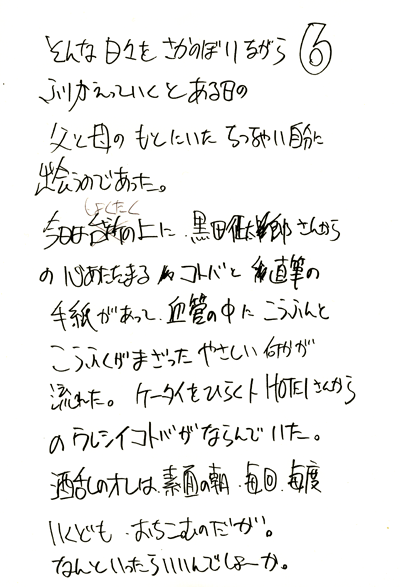 そんな日々をさかのぼりながら ⑥
ふりかえっていくとある日の
父と母のもとにいたちっちゃい自分に
出会うのであった。
しょくたく
今日は台所の上に、黒田征太郎さんから
の心あたたまるコトバと直筆の
手紙があって、血管の中にこうふんと
こうふくがまざったやさしい何かが
流れた。ケータイをひらくとHOTEIさんから
のウレシイコトバがならんでいた。
酒乱のオレは、素面の朝、毎回、毎度
いくども、おちこむのだが。
なんといったらいいんでしょーか。